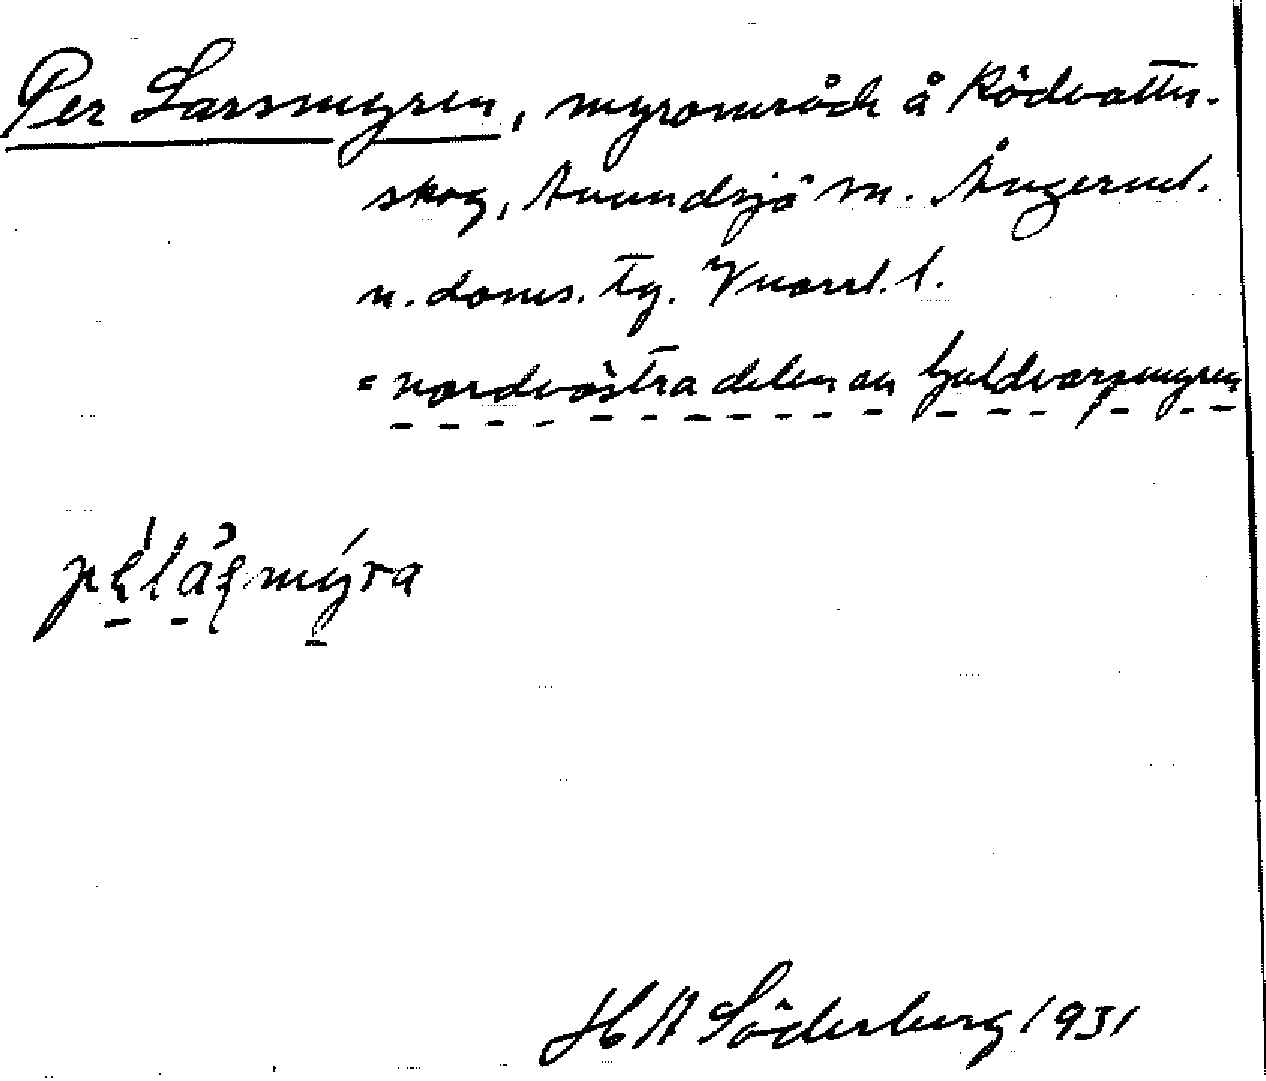 Per Larsmyren, myrområde å Rödvattn-
skog, Anundsjö sn. Ångerml.
n. doms. tg. Vnorrl. l.
= nordvästra delen av Guldvarpmyren
H A Söderberg 1931